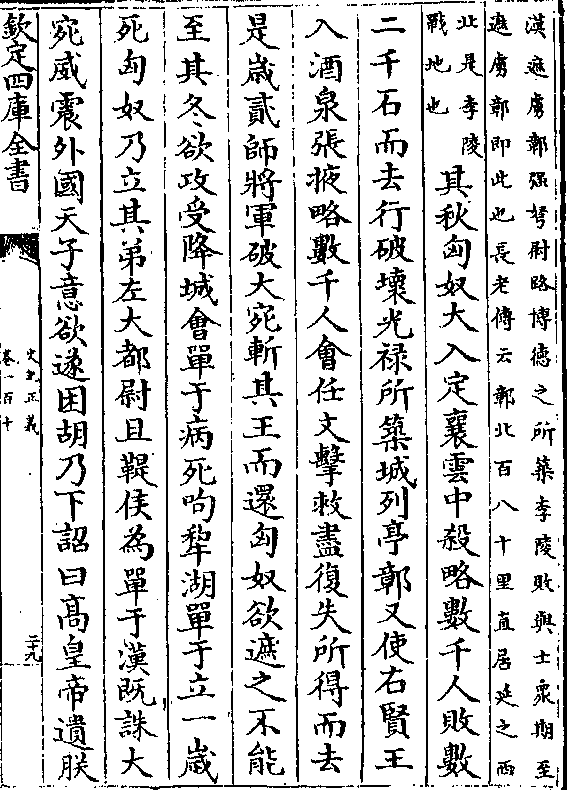 漢遮虜鄣彊弩尉路博德之所築李陵敗與士衆期至
遮虜鄣即此也長老傳云鄣北百八十里直居延之西
北是李陵
戰地也
其秋匈奴大入定襄雲中殺略數千人敗數
二千石而去行破壞光禄所築城列亭鄣又使右賢王
入酒泉張掖略數千人會任文擊救盡復失所得而去
是歲貳師將軍破大宛斬其王而還匈奴欲遮之不能
至其冬欲攻受降城會單于病死呴犂湖單于立一歲
死匈奴乃立其弟左大都尉且鞮侯為單于漢既誅大
宛威震外國天子意欲遂困胡乃下詔曰髙皇帝遺朕
欽定四庫全書
史記正義
卷一百十
二十九